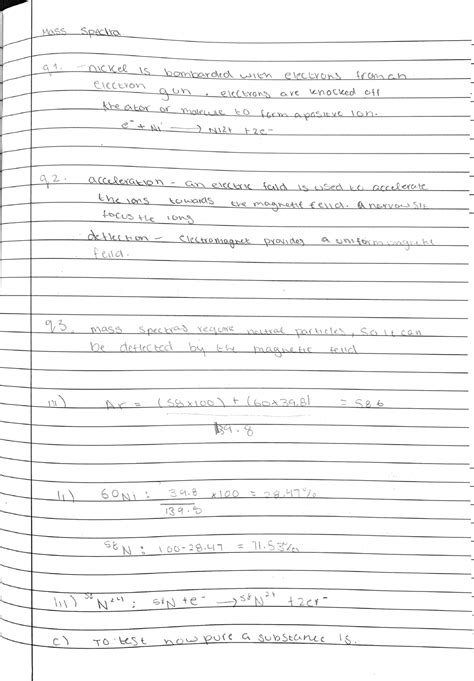 Mass Spectra
q1. - nickel is bombarded with electrons from an
electron gun, electrons are knocked off
the ator or molecule to form a positive ion.
e⁻ + Ni ⟶ Ni2+ +2e⁻
q2. acceleration - an electric feild is used to accelerate
the ions towards the magnetic feild. A narrow slit
focus the ions
deflection - electromagnet provides a uniform magnetic
feild.
q3. mass spectras require neutral particles, so it can
be deflected by the magnetic feild
iii) Ar = (58x100) + (60x39.8) = 58.6
139.8
ii) 60Ni : 39.8 x100 = 28.47%
139.8
58N : 100-28.47 = 71.53%
iii) 58N2+ : 58N + e⁻ ⟶ 58N2+ + 2e⁻
c) To test how pure a substance is.